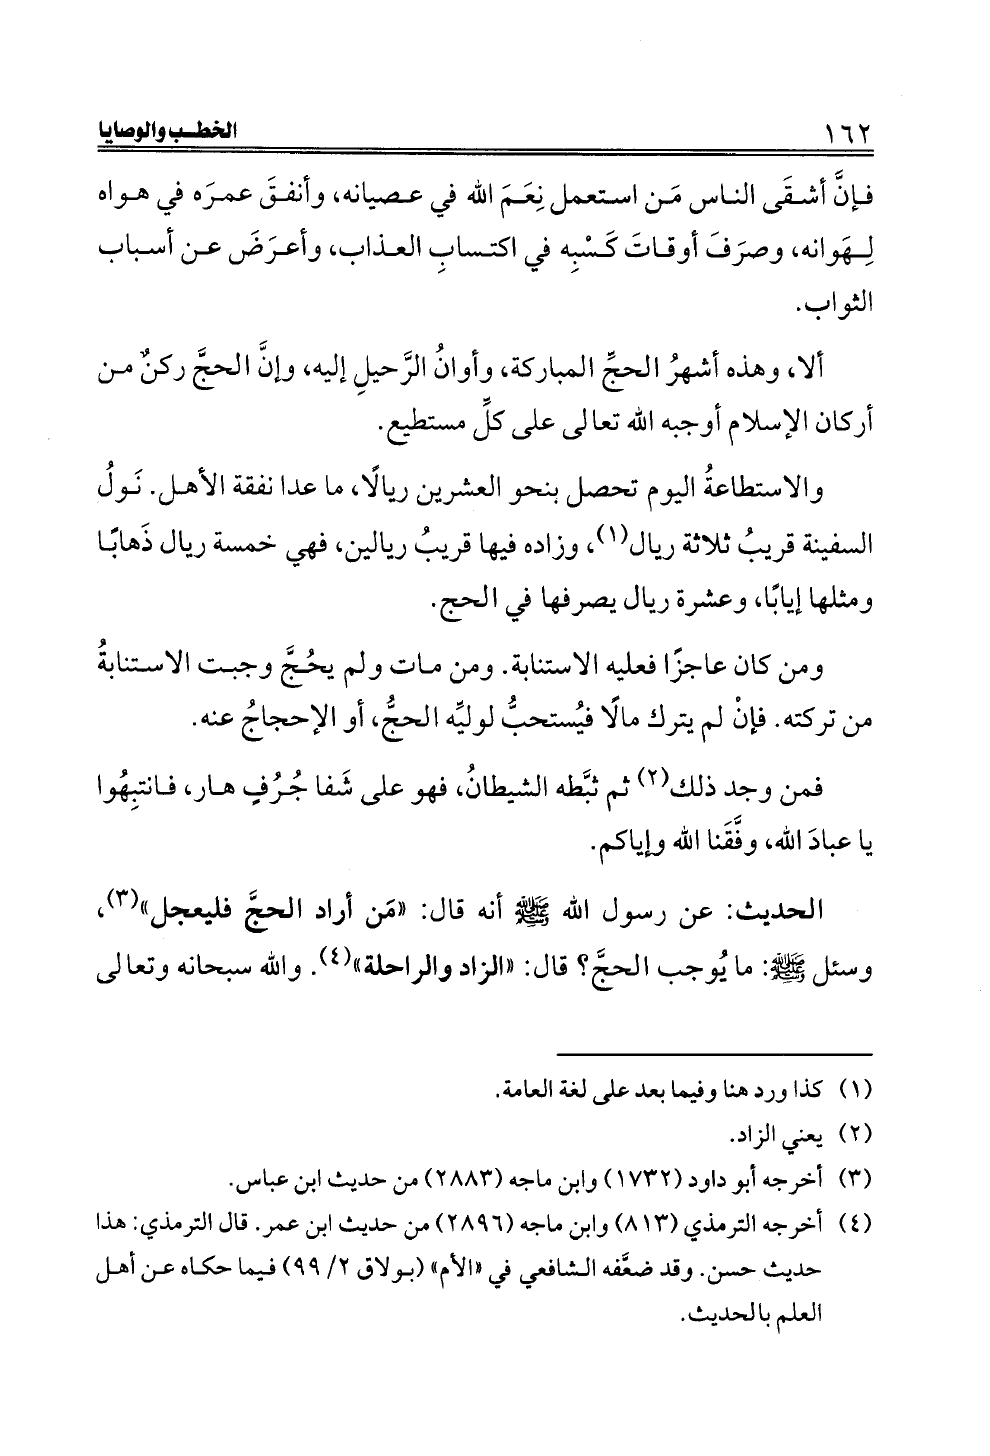 ١٦٢
الخطب والوصايا
فإنَّ أشقَى الناس مَن استعمل نِعَمَ الله في عصيانه، وأنفقَ عمرَه في هواه
لِهَوانه، وصرَفَ أوقاتَ كَسْبِه في اكتسابِ العذاب، وأعرَضَ عن أسباب
الثواب.
ألا، وهذه أشهرُ الحجِّ المباركة، وأوانُ الرَّحيلِ إليه، وإنَّ الحجَّ ركنٌ من
أركان الإسلام أوجبه الله تعالى على كلِّ مستطيع.
والاستطاعةُ اليوم تحصل بنحو العشرين ريالًا، ما عدا نفقة الأهل. نَولُ
السفينة قريبُ ثلاثة ريال(١)، وزاده فيها قريبُ ريالين، فهي خمسة ريال ذَهابًا
ومثلها إيابًا، وعشرة ريال يصرفها في الحج.
ومن كان عاجزًا فعليه الاستنابة. ومن مات ولم يحُجَّ وجبت الاستنابةُ
من تركته. فإنْ لم يترك مالًا فيُستحبُّ لوليِّه الحجُّ، أو الإحجاجُ عنه.
فمن وجد ذلك(٢) ثم ثبَّطه الشيطانُ، فهو على شَفا جُرُفٍ هار، فانتبِهُوا
يا عبادَ الله، وفَّقَنا الله وإياكم.
الحديث: عن رسول الله ﷺ أنه قال: «مَن أراد الحجَّ فليعجل»(٣)،
وسئل ﷺ: ما يُوجب الحجَّ؟ قال: «الزاد والراحلة»(٤). والله سبحانه وتعالى
(١) كذا ورد هنا وفيما بعد على لغة العامة.
(٢) يعني الزاد.
(٣) أخرجه أبو داود (١٧٣٢) وابن ماجه (٢٨٨٣) من حديث ابن عباس.
(٤) أخرجه الترمذي (٨١٣) وابن ماجه (٢٨٩٦) من حديث ابن عمر. قال الترمذي: هذا
حديث حسن. وقد ضعَّفه الشافعي في «الأم» (بولاق ٢/ ٩٩) فيما حكاه عن أهل
العلم بالحديث.